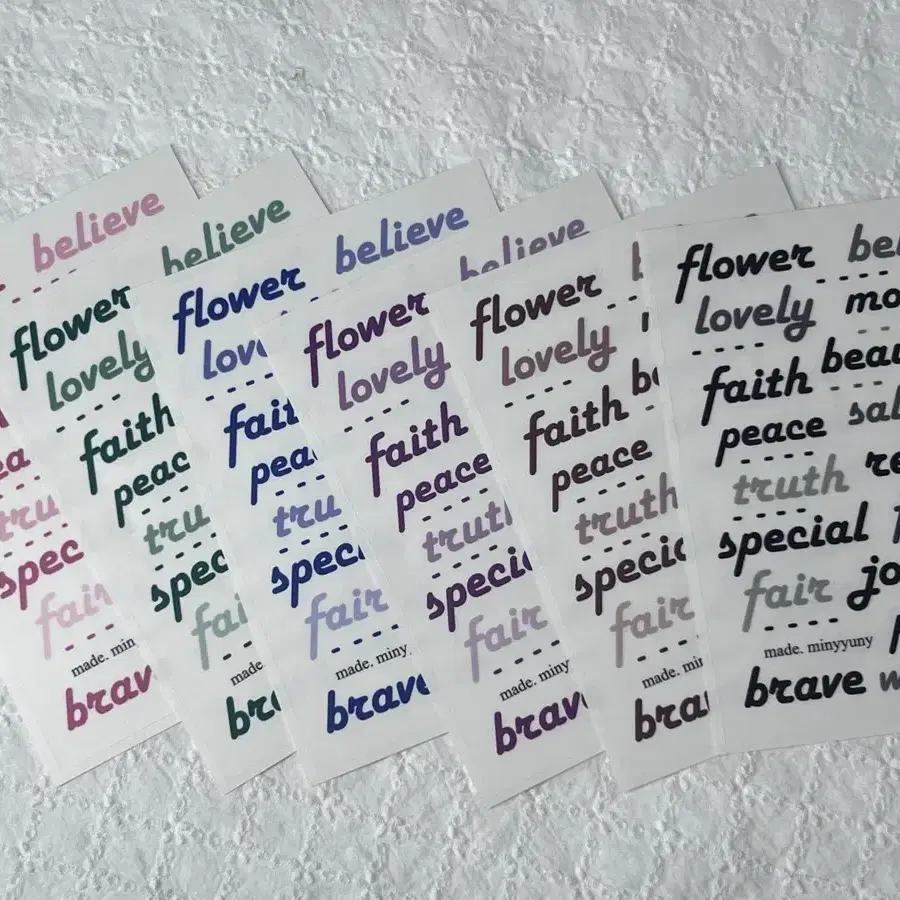 believe
ea
tru
spec
fair
made. min
brav
believe
flower
lovely
faith
peac
tru
spec
fai
made.
br
believe
flower
lov
fait
pea
tru
spec
fair
made. miny
brave
believe
flower
lovely
faith
peace
truth
speci
fair
made. miny
brav
flower
lovely
faith be
peace
truth
specia
fair
made. mi
bra
flower bel
lovely mo
faith beau
peace sal
truth re
special
fair jo
made. minyyuny
brave w